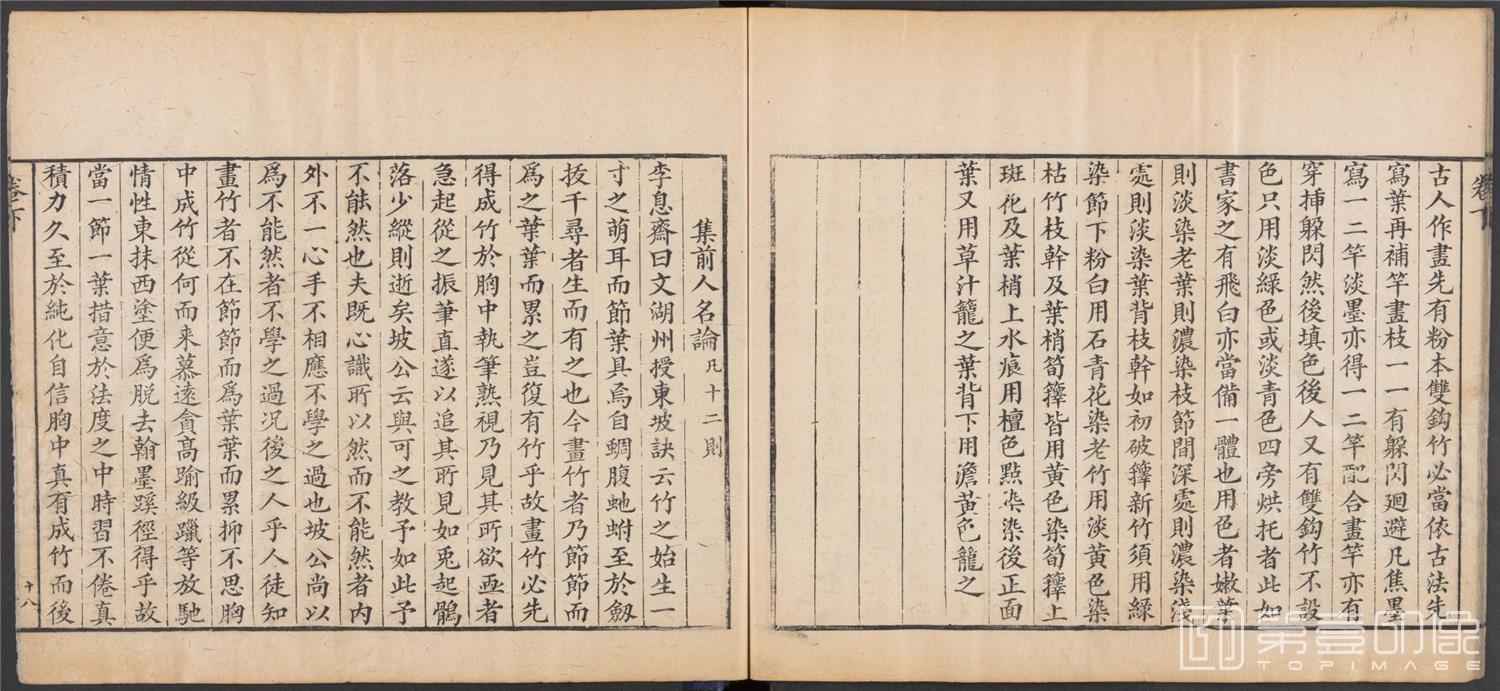 古人作畫先有粉本雙鈎竹必當依古法先
寫葉再補竿畫枝一一有躲閃廻避凡焦墨
寫一二竿淡墨亦得一二竿配合畫竿亦有
穿揷躲閃然後填色後人又有雙鈎竹不設
色只用淡綠色或淡青色四旁烘托者此如
書家之有飛白亦當備一體也用色者嫩葉
則淡染老葉則濃染枝節間深處則濃染淺
處則淡染葉背枝幹如初破籜新竹須用綠
染節下粉白用石青花染老竹用淡黄色染
枯竹枝幹及葉梢筍籜皆用黄色染筍籜上
斑花及葉梢上水痕用檀色點染染後正面
葉又用草汁籠之葉背下用澹黄色籠之
集前人名論凡十二則
李息齋曰文湖州授東坡訣云竹之始生一
寸之萌耳而節葉具焉自蜩腹虵蚹至於劒
拔千尋者生而有之也今畫竹者乃節節而
爲之葉葉而累之豈復有竹乎故畫竹必先
得成竹於胸中執筆熟視乃見其所欲畫者
急起從之振筆直遂以追其所見如兎起鶻
落少縱則逝矣坡公云與可之教予如此予
不能然也夫既心識所以然而不能然者内
外不一心手不相應不學之過也坡公尚以
爲不能然者不學之過况後之人乎人徒知
畫竹者不在節節而爲葉葉而累抑不思胸
中成竹從何而来慕遠貪高踰級躐等放馳
情性東抹西塗便爲脱去翰墨蹊徑得乎故
當一節一葉措意於法度之中時習不倦真
積力久至於純化自信胸中真有成竹而後
十八
第壹印像
TOPIMAGE